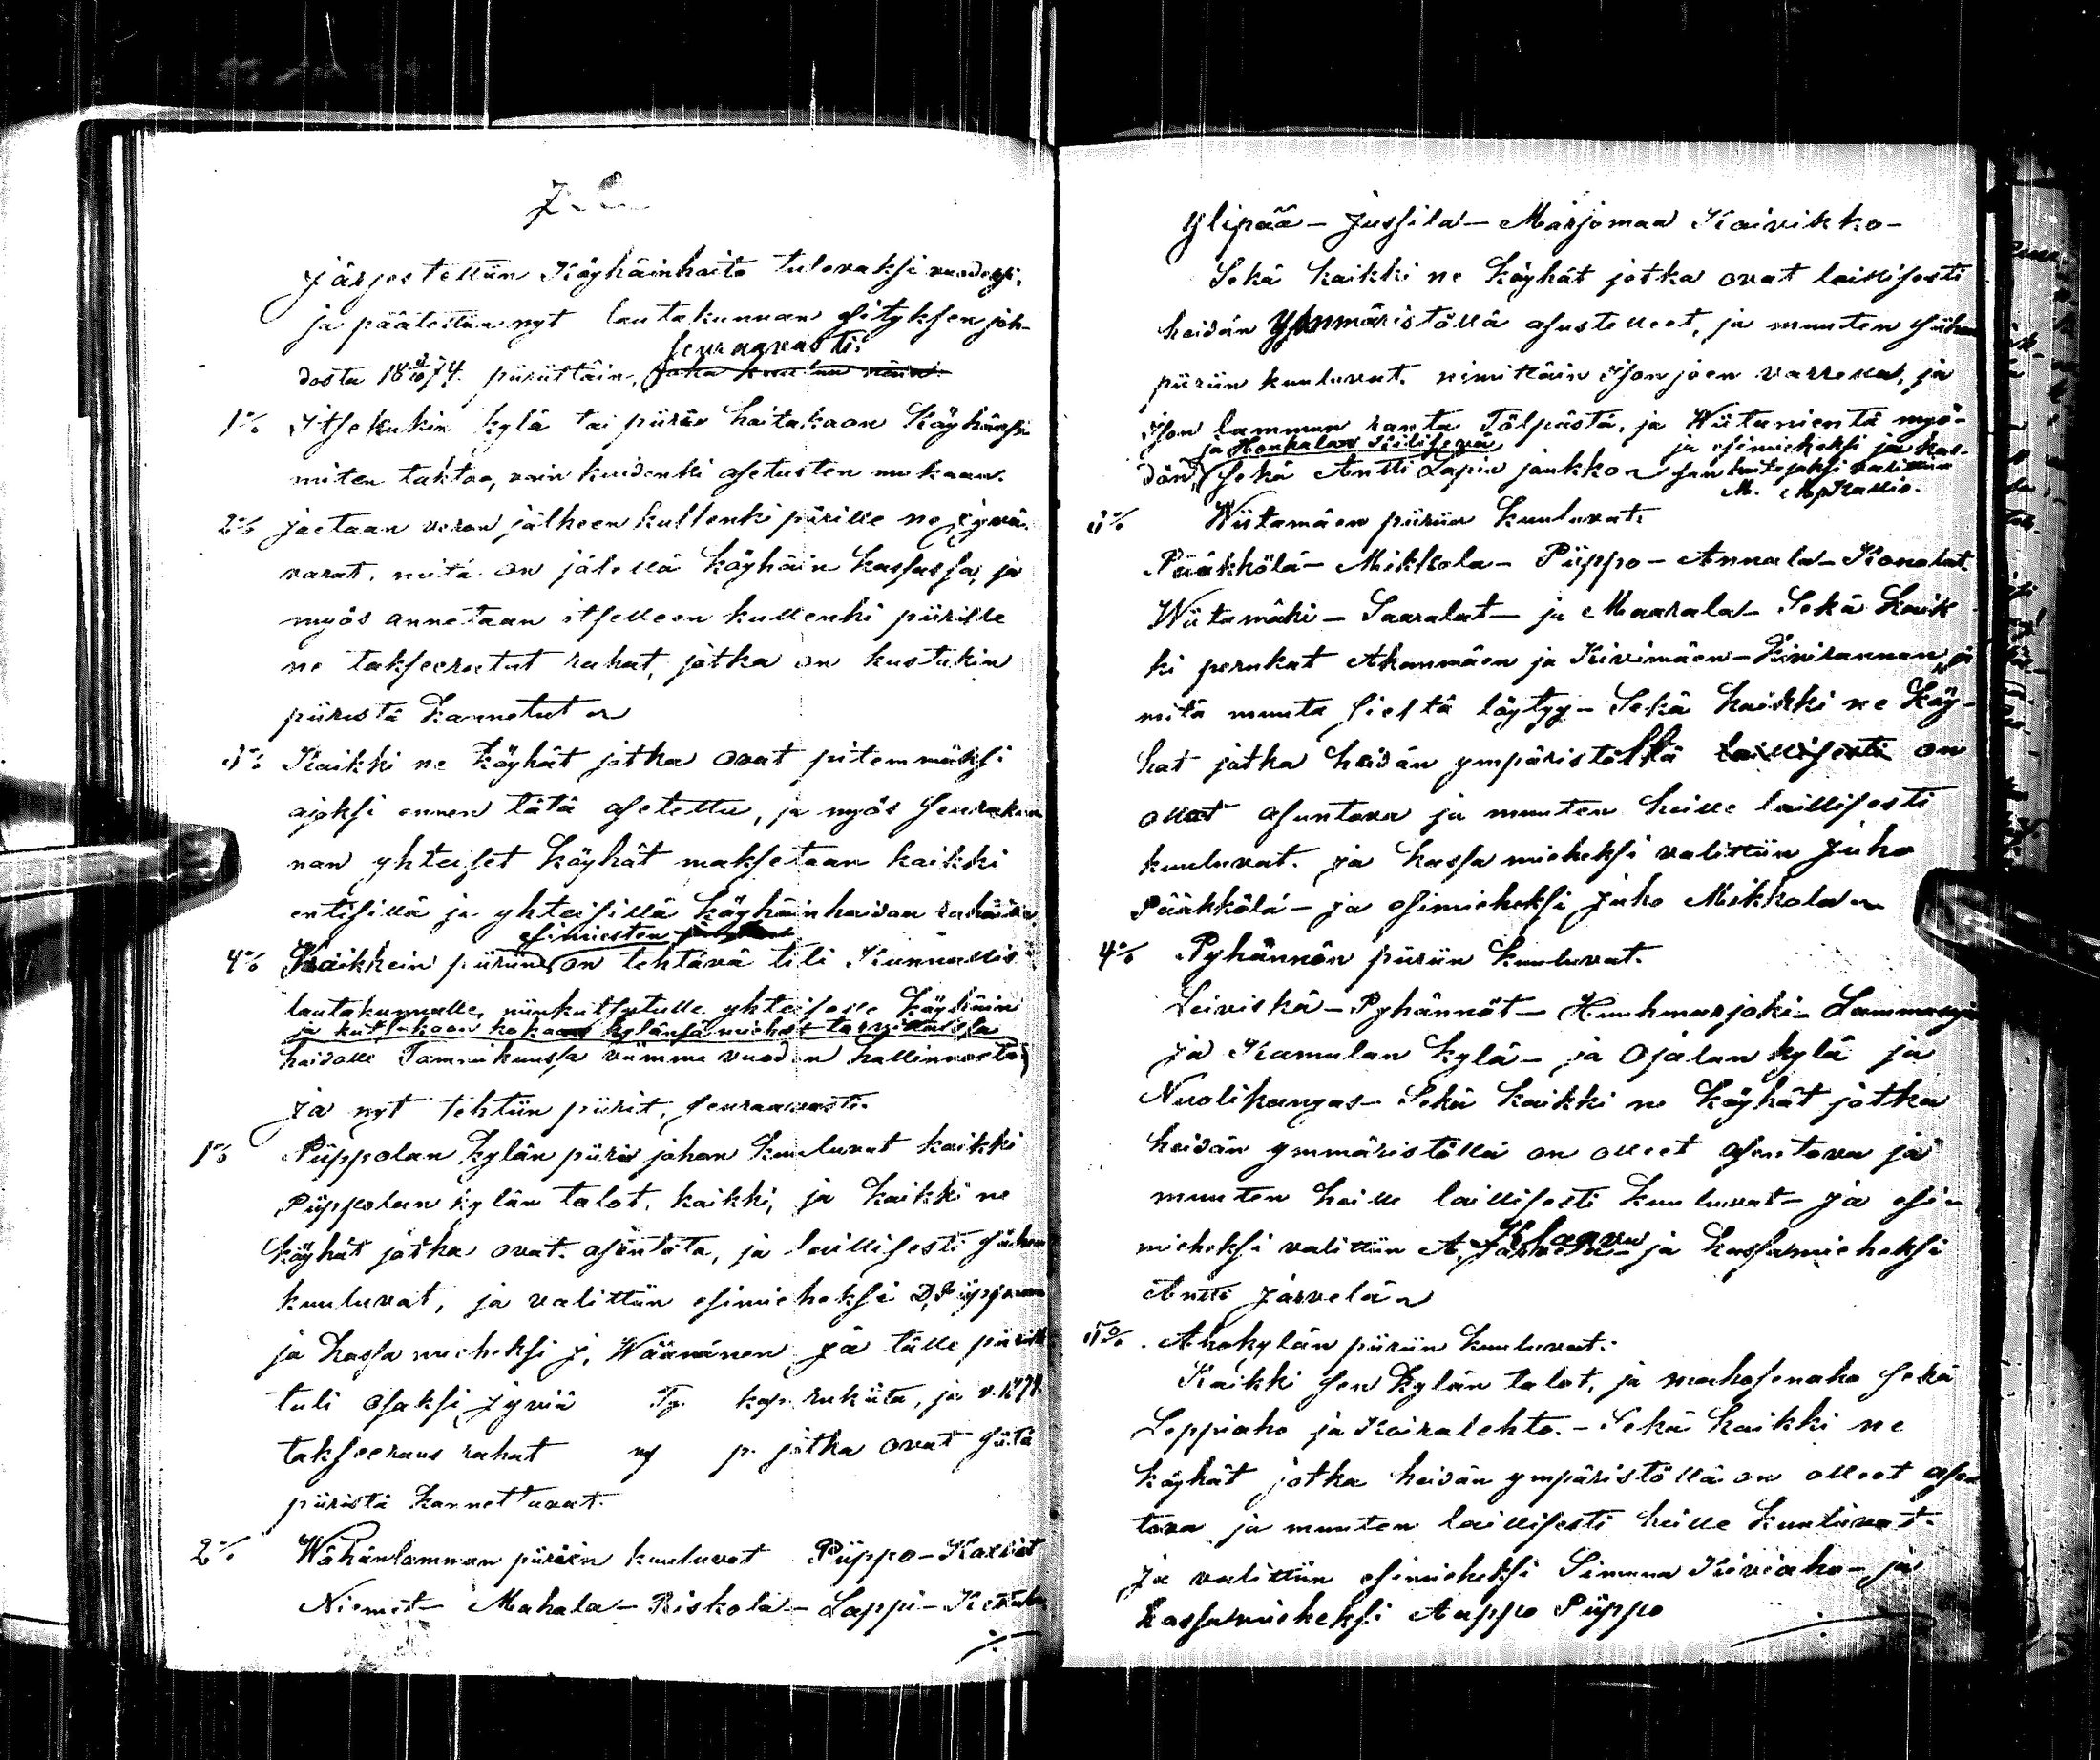 Järjestettiin Köyhäinhoito tulevaksi vuodeksi,
ja päätettiin nyt lautakunnan esityksen joh-
seuraavasti.
dosta 18 74. piirittäin,
1o/o Itsekukin kylä tai piiri hoitakoon Köyhänsä
miten tahtoo, vain kuidenki asetusten mukaan.
2o/o Jaetaan veron jälkeen kullenki piirille ne Jyvä-
varat, mitä on jälellä köyhäin kassassa, ja
myös annetaan itselleen kullenki piirille
ne takseeratut rahat, jotka on kustakin
piiristä kannetut
3o/o Kaikki ne köyhät jotka ovat pitemmäksi
ajaksi ennen tätä asetettu, ja myös seurakun
nan yhteiset köyhät maksetaan kaikki
entisillä ja yhteisillä köyhäinhoidon rahoilla
esimiesten
4o/o Kaikkein piirien on tehtävä tili Kunnallis
lautakunnalle, niinkutsutulle yhteiselle köyhäin
ja kutsukoon kokoon kylänsä miehet tarvittaissa
hoidolle Tammikuussa viimme vuoden hallinnosta
Ja nyt tehtiin piirit, seuraavasti.
1o/o Piippolan kylän piiri johon kuuluvat kaikki
Piippolan kylän talot, kaikki, ja kaikki ne
köyhät jotka ovat asuntota, ja laillisesti siihen
kuuluvat, ja valittiin esimieheksi D, Piippo
ja kassa mieheksi J, Wäänänen Ja tälle piirille
tuli osaksi jyviä Ty. kap. rukiita, ja v. 1874
takseeraus rahat p. jotka ovat siitä
piiristä kannettavat.
2o/o Wähänlamman piiriin kuuluvat Piippo-Karvat
Niemet- Mahala- Riskola- Lappi- Kettula
Ylipää- Jussila- Marjomaa Kaivikko-
Sekä kaikki ne köyhät jotka ovat laillisesti
heidän ymmäristöllä asustelleet, ja muuten siihen
piiriin kuuluvat. nimittäin Ison joen varrella, ja
Ison lamman ranta Tölpästä, ja Wiitanientä myö-
ja Honkalan ja esimieheksi ja kas-
dän, sekä Antti Lapin joukko san hoitajaksi valittiin
M. Kallio.
3o/o Wiitamäen piiriin kuuluvat.
Pääkkölä- Mikkola- Piippo- Annala- Konolat.
Wiitamäki- Saaralat- ja Maarala- Sekä kaik
ki perukat Ahonmäen ja Kivimäen- Kivirannan, ja
mitä muuta sieltä löytyy- Sekä kaikki ne köy-
hät jotka heidän ympäristöllä laillisesti on
ollut asuntova ja muuten heille laillisesti
kuuluvat. ja kassa mieheksi valittiin Juho
Pääkkölä- ja esimieheksi Juho Mikkola
4o/o Pyhännän piiriin kuuluvat.
Leiviskä- Pyhännöt- Kuuhmarjoki- Lamminoja
ja Kamulan kylä- ja Ojalan kylä ja
Nuolikangas- Sekä kaikki ne köyhät jotka
heidän ymmäristöllä on olleet asuntova ja
muuten heille laillisesti kuuluvat- Ja esi-
mieheksi valittiin A, ja kassamieheksi
Antti Järvelä
5o/o Ahokylän piiriin kuuluvat.
Kaikki sen kylän talot, ja mahosenaho sekä
Leppiaho ja Kairalehto.- Sekä kaikki ne
köyhät jotka heidän ympäristöllä on olleet asun
tova ja muuten laillisesti heille kuuluvat.
Ja valittiin esimieheksi Simuna Kiviaho- ja
kassamieheksi Aappo Piippo